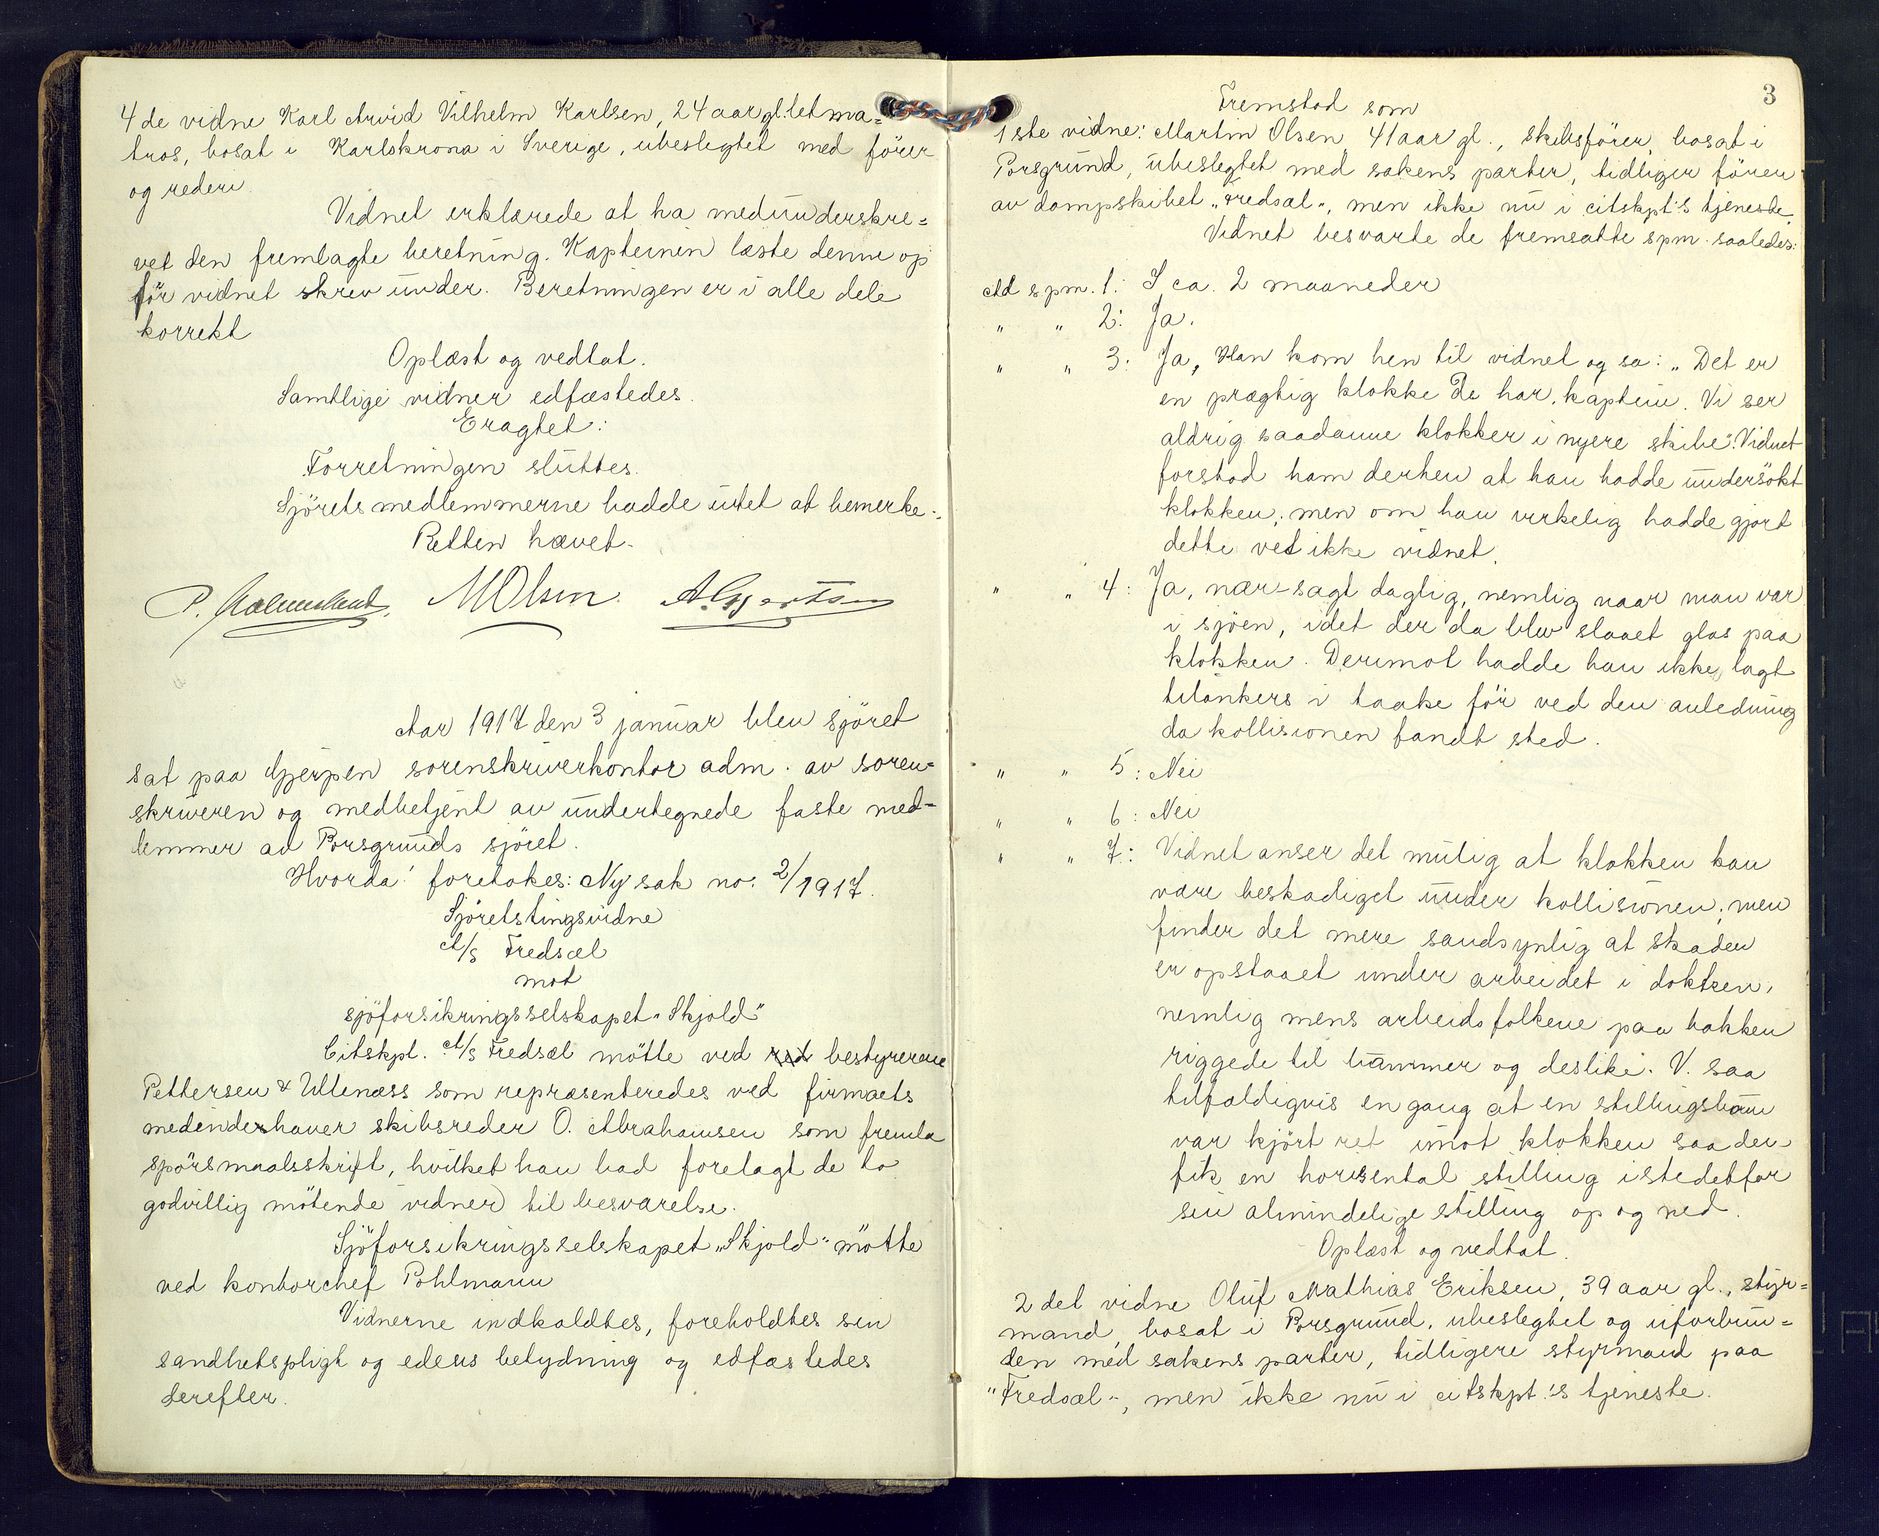 4de vidne Karl Arvid Vilhelm Karlsen, 24 aar gl. letma=
tros, bosat i Karlskrona i Sverige, ubeslegtet med fører
og rederi.
Vidnet erklærede at ha medunderskre=
vet den fremlagte beretning. Kapteinen læste denne op
før vidnet skrev under. Beretningen er i alle dele
korrekt
Oplæst og vedtat.
Samtlige vidner edfæstedes.
Eragtet:
Forretningen sluttes.
Sjöretsmedlemmerne hadde intet at bemerke.
Retten hævet.
MOlsen.
Aar 1917 den 3 januar blev sjöret
sat paa Gjerpen sorenskriverkontor adm. av soren=
skriveren og medbetjent av undertegnede faste med=
lemmer av Porsgrunds sjöret.
Hvorda! foretokes: Ny sak no. 2/1917.
Sjöretstingsvidne
A/S Fredsæl
mot
sjöforsikringsselskapet "Skjold"
Citskpt. A/S Fredsæl mötte ved red bestyrerene
Pettersen & Ullenæss som repræsenteredes ved firmaets
medindehaver skibsreder O. Abrahamsen som fremla
spörsmaalsskrift, hvilket han bad forelagt de to
godvillig mötende vidner til besvarelse.
Sjöforsikringsselskapet "Skjold" mötte
ved kontorchef Pohlmann
Vidnerne indkaldtes, foreholdtes sin
sandhetspligt og edens betydning og edfæstedes
derefter.
3
Fremstod som
1ste vidne: Martin Olsen, 41 aar gl., skibsförer, bosat i
Porsgrund, ubeslegtet med sakens parter, tidliger fören
av dampskibet "Fredsæl", men ikke nu i citskpt's tjeneste.
Vidnet besvarte de fremsatte spm. saaledes:
Ad spm. 1: I ca. 2 maaneder
" " 2: Ja.
" " 3: Ja, Han kom hen til vidnet og sa: "Det er
en prægtig klokke De har, kaptein. Vi ser
aldrig saadanne klokker i nyere skibe". Vidnet
forstod ham derhen at han hadde undersökt
klokken, men om han virkelig hadde gjort
dette vet ikke vidnet.
" " 4: Ja, nær sagt daglig, nemlig naar man var
i sjöen, idet der da blev slaaet glas paa
klokken. Derimot hadde han ikke lagt
tilankers i taake för ved den anledning
da kollisionen fandt sted.
" " 5: Nei
" " 6: Nei
" " 7: Vidnet anser det mulig at klokken kan
være beskadiget under kollisionen, men
finder det mere sandsynlig at skaden
er opstaaet under arbeidet i dokken,
nemlig mens arbeidsfolkene paa bakken
riggede til tømmer og deslike. V. saa
tilfældigvis en gang at en stillingsbom
var kjört ret imot klokken saa den
fik en horisental stilling istedetfor
sin almindelige stilling op og ned.
Oplæst og vedtat.
2det vidne Oluf Mathias Eriksen, 39 aar gl., styr=
mand, bosat i Porsgrund, ubeslegtet og uforbun=
den med sakens parter, tidligere styrmand paa
"Fredsæl", men ikke nu i citskpt.'s tjeneste.